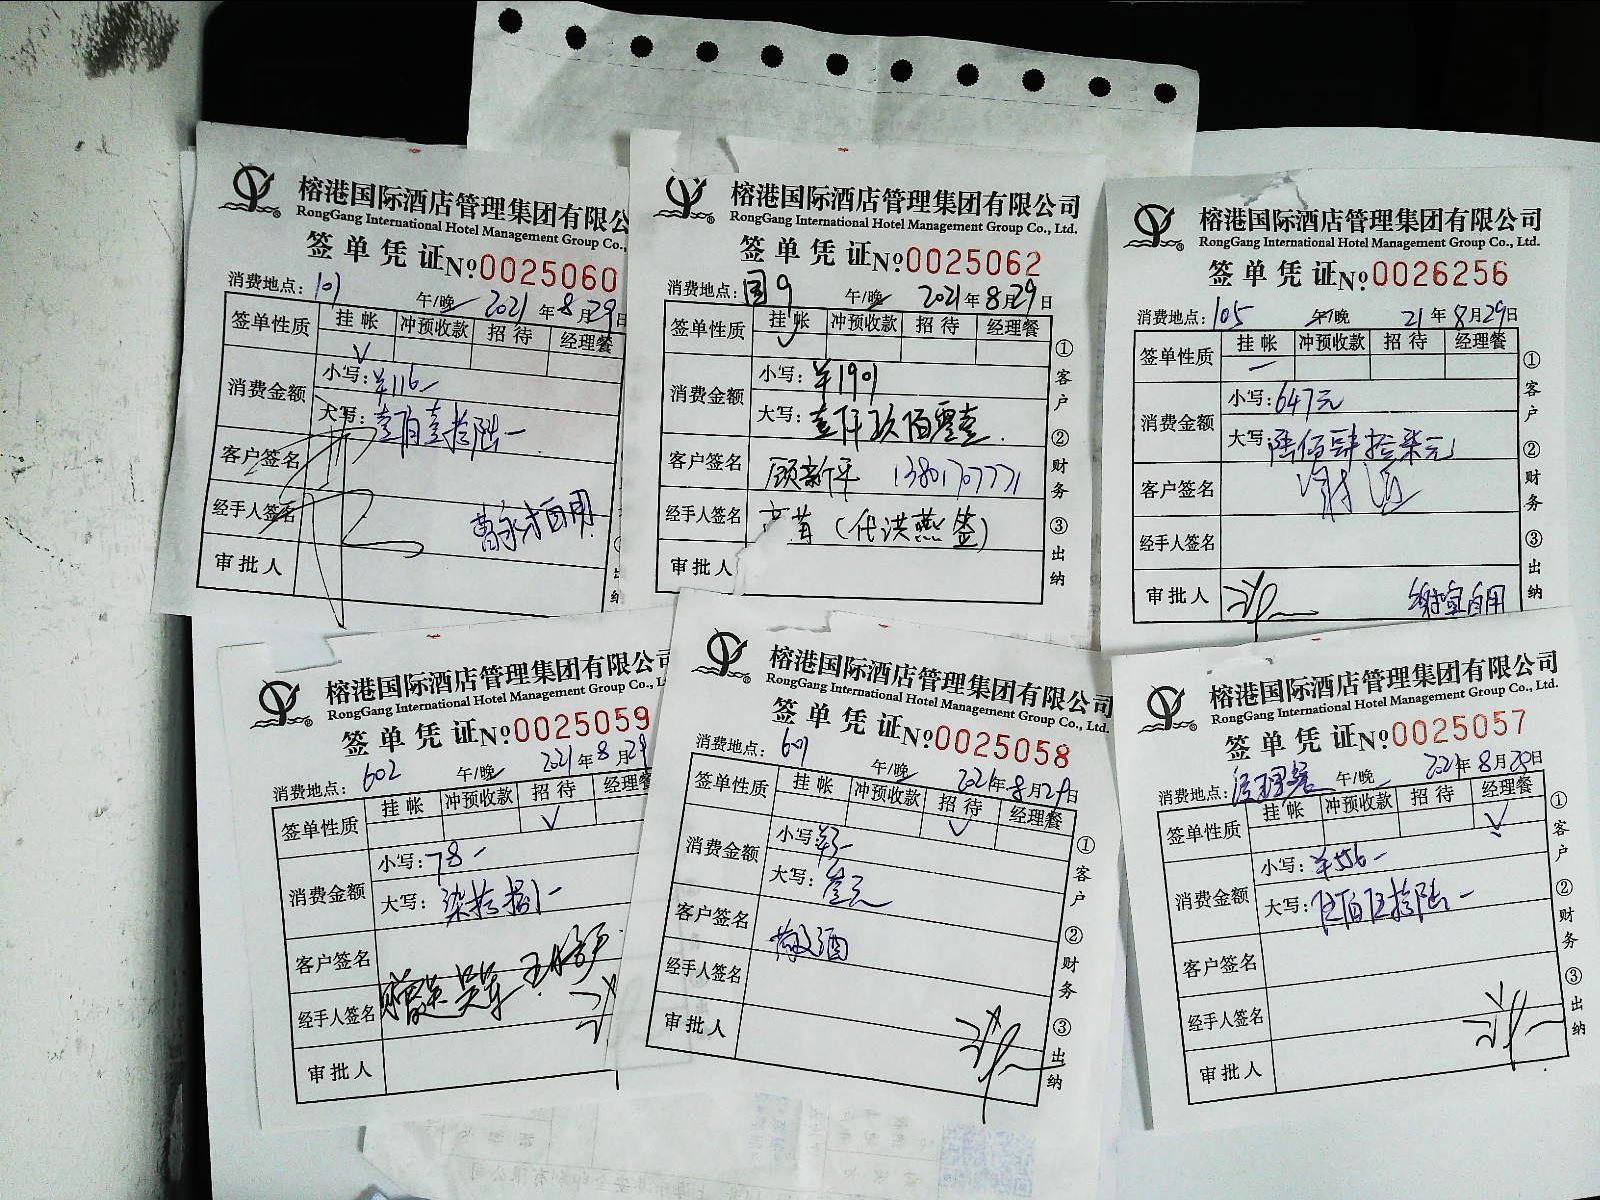 榕港国际酒店管理集团有限公
RongGang International Hotel Management Group Co.,
签单凭证 №0025060
消费地点：101 午/晚 2021年8月29日
签单性质 挂帐 冲预收款 招待 经理餐
√
消费金额 小写：¥116-
大写：壹佰壹拾陆-
客户签名
经手人签名
审批人
榕港国际酒店管理集团有限公司
RongGang International Hotel Management Group Co., Ltd.
签单凭证 №0025062
消费地点：国9 午/晚 2021年8月29日
签单性质 挂帐 冲预收款 招待 经理餐
√
消费金额 小写：¥1901
大写：壹仟玖佰零壹.
客户签名 顾新平 13801707771
经手人签名 (代洪燕签)
审批人
①客户 ②财务 ③出纳
榕港国际酒店管理集团有限公司
RongGang International Hotel Management Group Co., Ltd.
签单凭证 №0026256
消费地点：105 午/晚 21年8月29日
签单性质 挂帐 冲预收款 招待 经理餐
消费金额 小写：647元
大写：陆佰肆拾柒元
客户签名
经手人签名
审批人
①客户 ②财务 ③出纳
榕港国际酒店管理集团有限公司
RongGang International Hotel Management Group Co.,
签单凭证 №0025059
消费地点：602 午/晚 2021年8月29
签单性质 挂帐 冲预收款 招待 经理餐
√
消费金额 小写：78-
大写：柒拾捌-
客户签名
经手人签名
审批人
榕港国际酒店管理集团有限公司
RongGang International Hotel Management Group Co., Ltd.
签单凭证 №0025058
消费地点：601 午/晚 2021年8月29日
签单性质 挂帐 冲预收款 招待 经理餐
√
消费金额 小写：
大写：
客户签名 敬酒
经手人签名
审批人
①客户 ②财务 ③出纳
榕港国际酒店管理集团有限公司
RongGang International Hotel Management Group Co., Ltd.
签单凭证 №0025057
消费地点：经理餐 午/晚 2021年8月29日
签单性质 挂帐 冲预收款 招待 经理餐
√
消费金额 小写：¥556-
大写：伍佰伍拾陆-
客户签名
经手人签名
审批人
①客户 ②财务 ③出纳